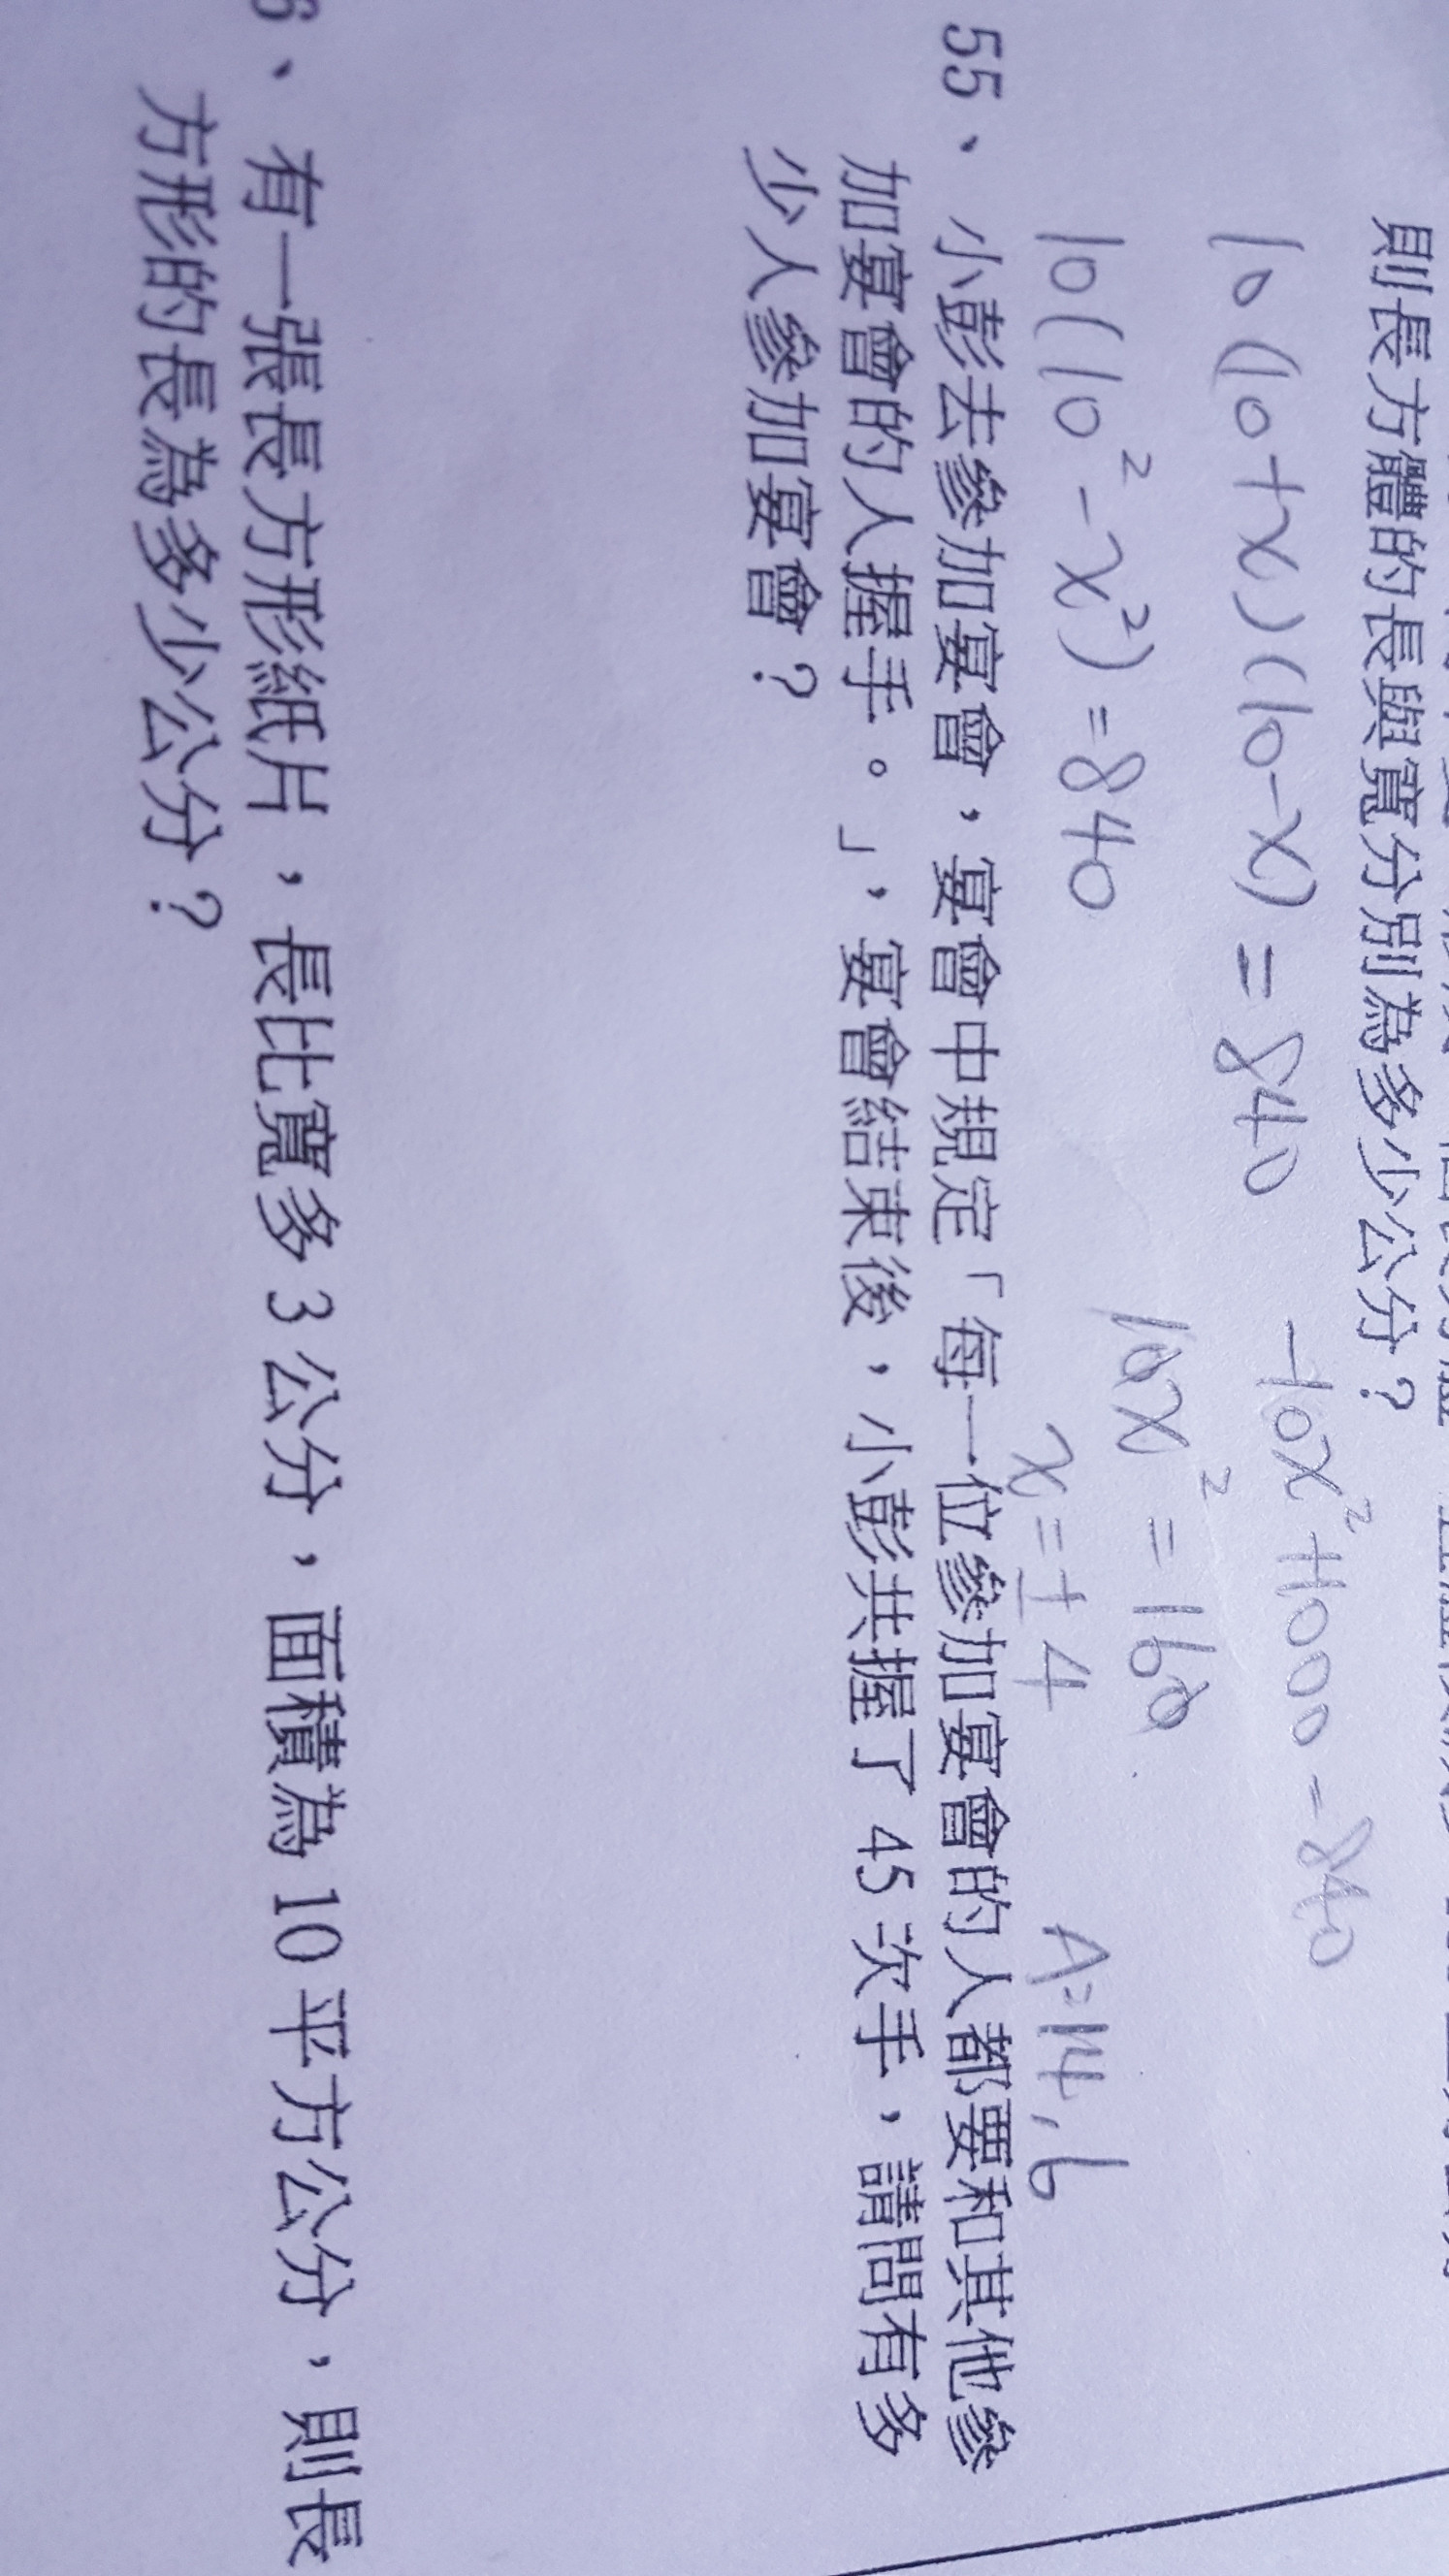 則長方體的長與寬分別為多少公分？
10(10+x)(10-x)=840
-10x²+1000=840
10(10²-x²)=840
10x²=160
x=±4
A=14,6
55、小彭去參加宴會，宴會中規定「每一位參加宴會的人都要和其他參
加宴會的人握手。」，宴會結束後，小彭共握了 45 次手，請問有多
少人參加宴會？
6、有一張長方形紙片，長比寬多 3 公分，面積為 10 平方公分，則長
方形的長為多少公分？